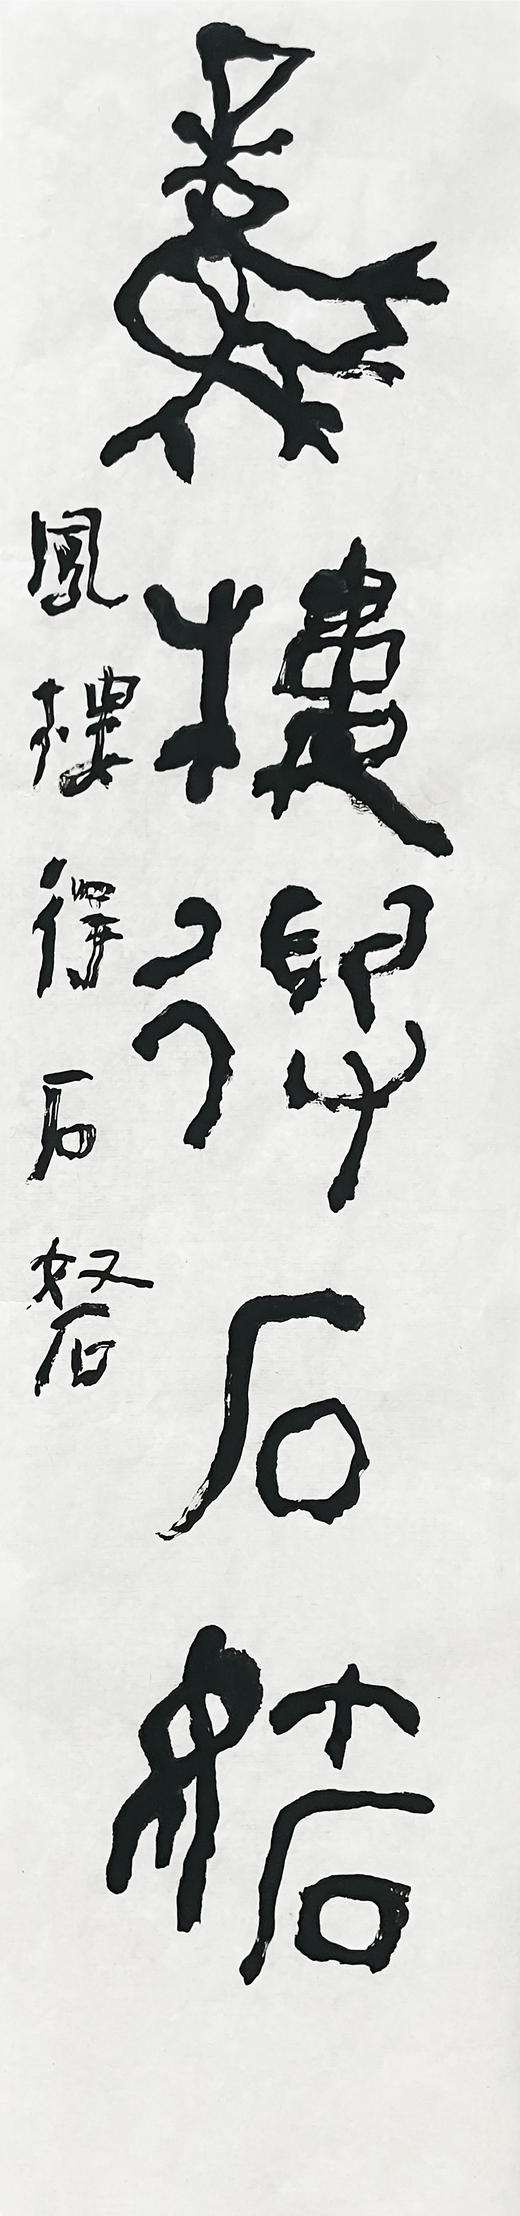 鳳樓得石砮
鳳樓得石砮